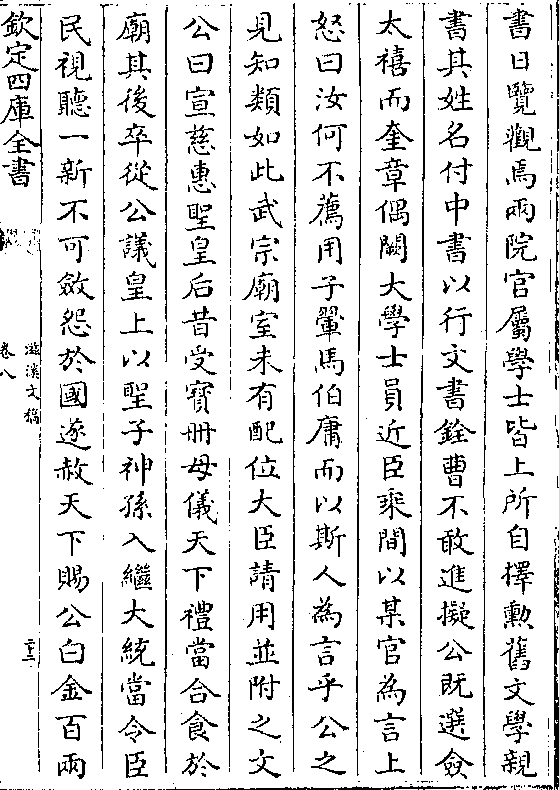 書日覽觀焉兩院官屬學士皆上所自擇勲舊文學親
書其姓名付中書以行文書銓曹不敢進擬公既遷僉
太禧而奎章偶闕大學士員近臣乘間以某官為言上
怒曰汝何不薦用子翬馬伯庸而以斯人為言乎公之
見知類如此武宗廟室未有配位大臣請用並附之文
公曰宣慈惠聖皇后昔受寳册母儀天下禮當合食於
廟其後卒從公議皇上以聖子神孫入繼大統當令臣
民視聽一新不可斂怨於國遂赦天下賜公白金百兩
欽定四庫全書
滋溪文稿
卷八